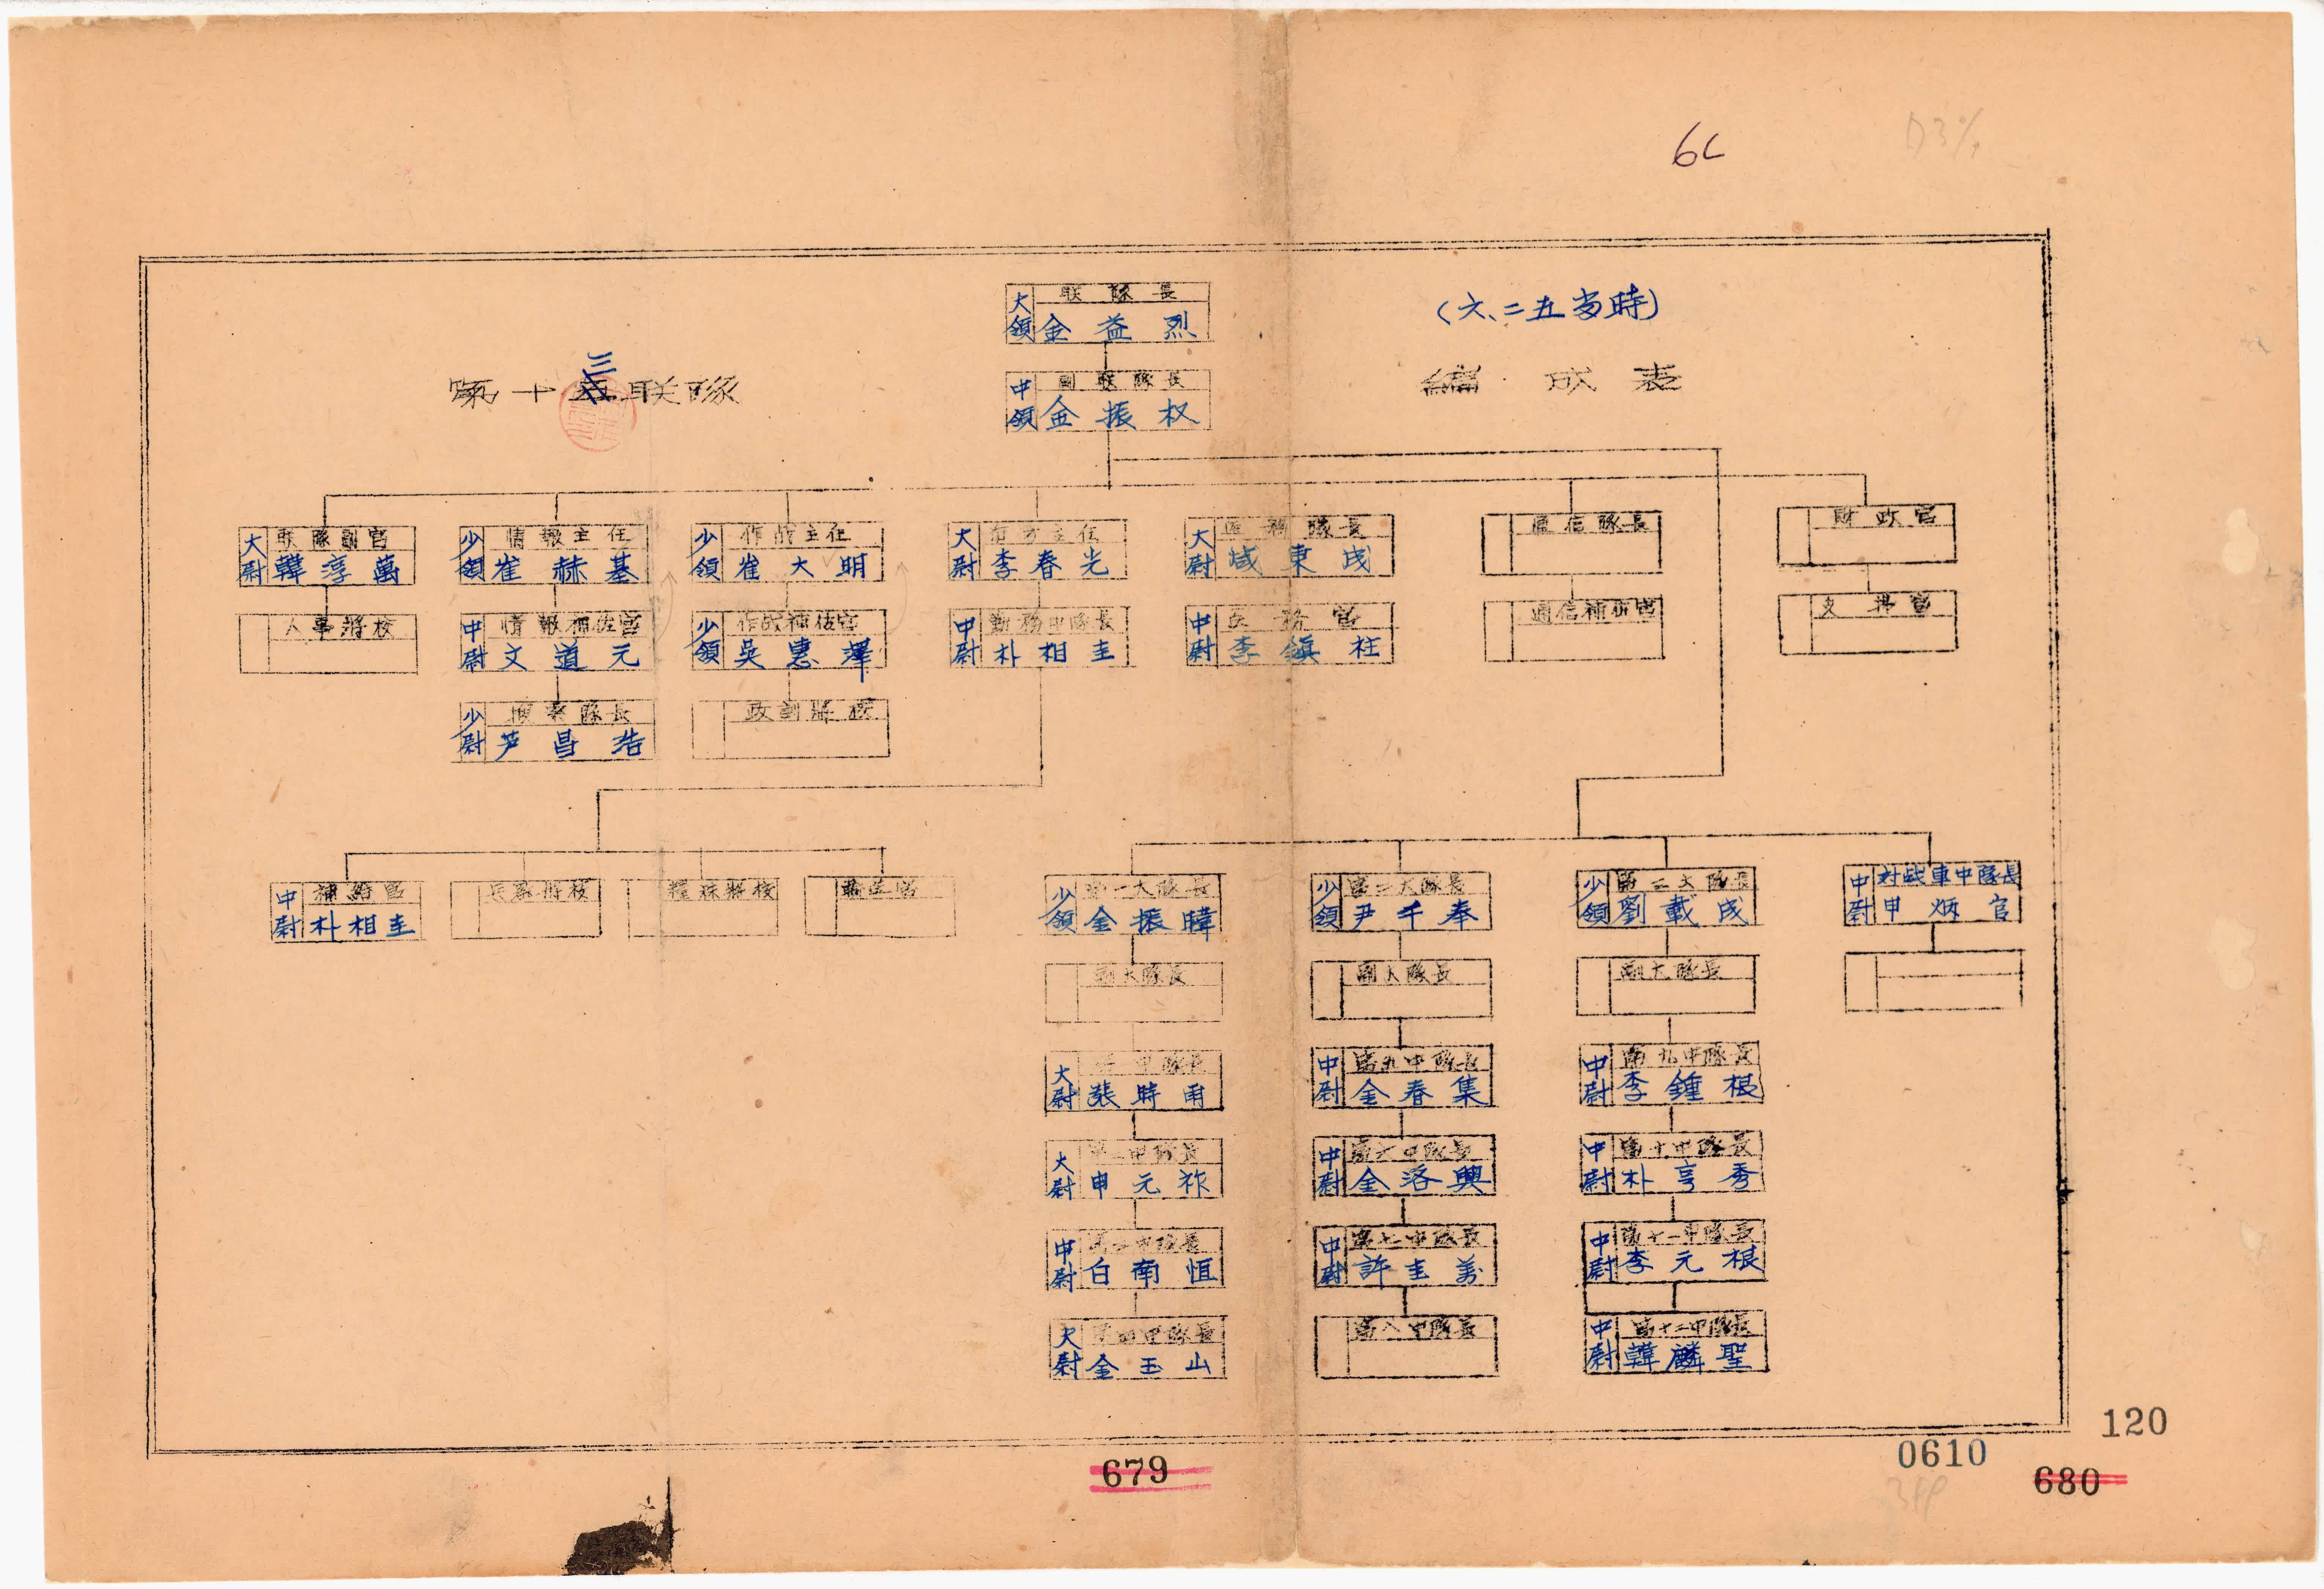 6
(六、二五当時)
第十三联隊
編成表
联隊長
大領 金益烈
副联隊長
中領 金振权
联隊副官
大尉 韓淳萬
情報主任
少領 崔赫基
作战主任
少領 崔大明
主任
大尉 李春光
医務隊長
大尉 咸東成
通信隊長
財政官
人事將校
情報補佐官
中尉 文道元
作战補佐官
少領 吳惠澤
勤務中隊長
中尉 朴相圭
医務官
中尉 李鎭柱
通信補佐官
搜索隊長
少尉 芦昌浩
將校
補給官
中尉 朴相圭
兵器將校
將校
第一大隊長
少領 金振暐
第二大隊長
少領 尹千奉
第三大隊長
少領 劉載成
対战車中隊長
中尉 申炳官
副大隊長
副大隊長
副大隊長
中隊長
大尉 張時雨
第九中隊長
中尉 金春集
第九中隊長
中尉 李鍾根
第二中隊長
大尉 申元祚
第六中隊長
中尉 金洛興
第十中隊長
中尉 朴亨秀
第三中隊長
中尉 白南恒
第七中隊長
中尉 許圭
第十一中隊長
中尉 李元根
第四中隊長
大尉 金玉山
第八中隊長
第十二中隊長
中尉 韓麟聖
120
0610
679
680